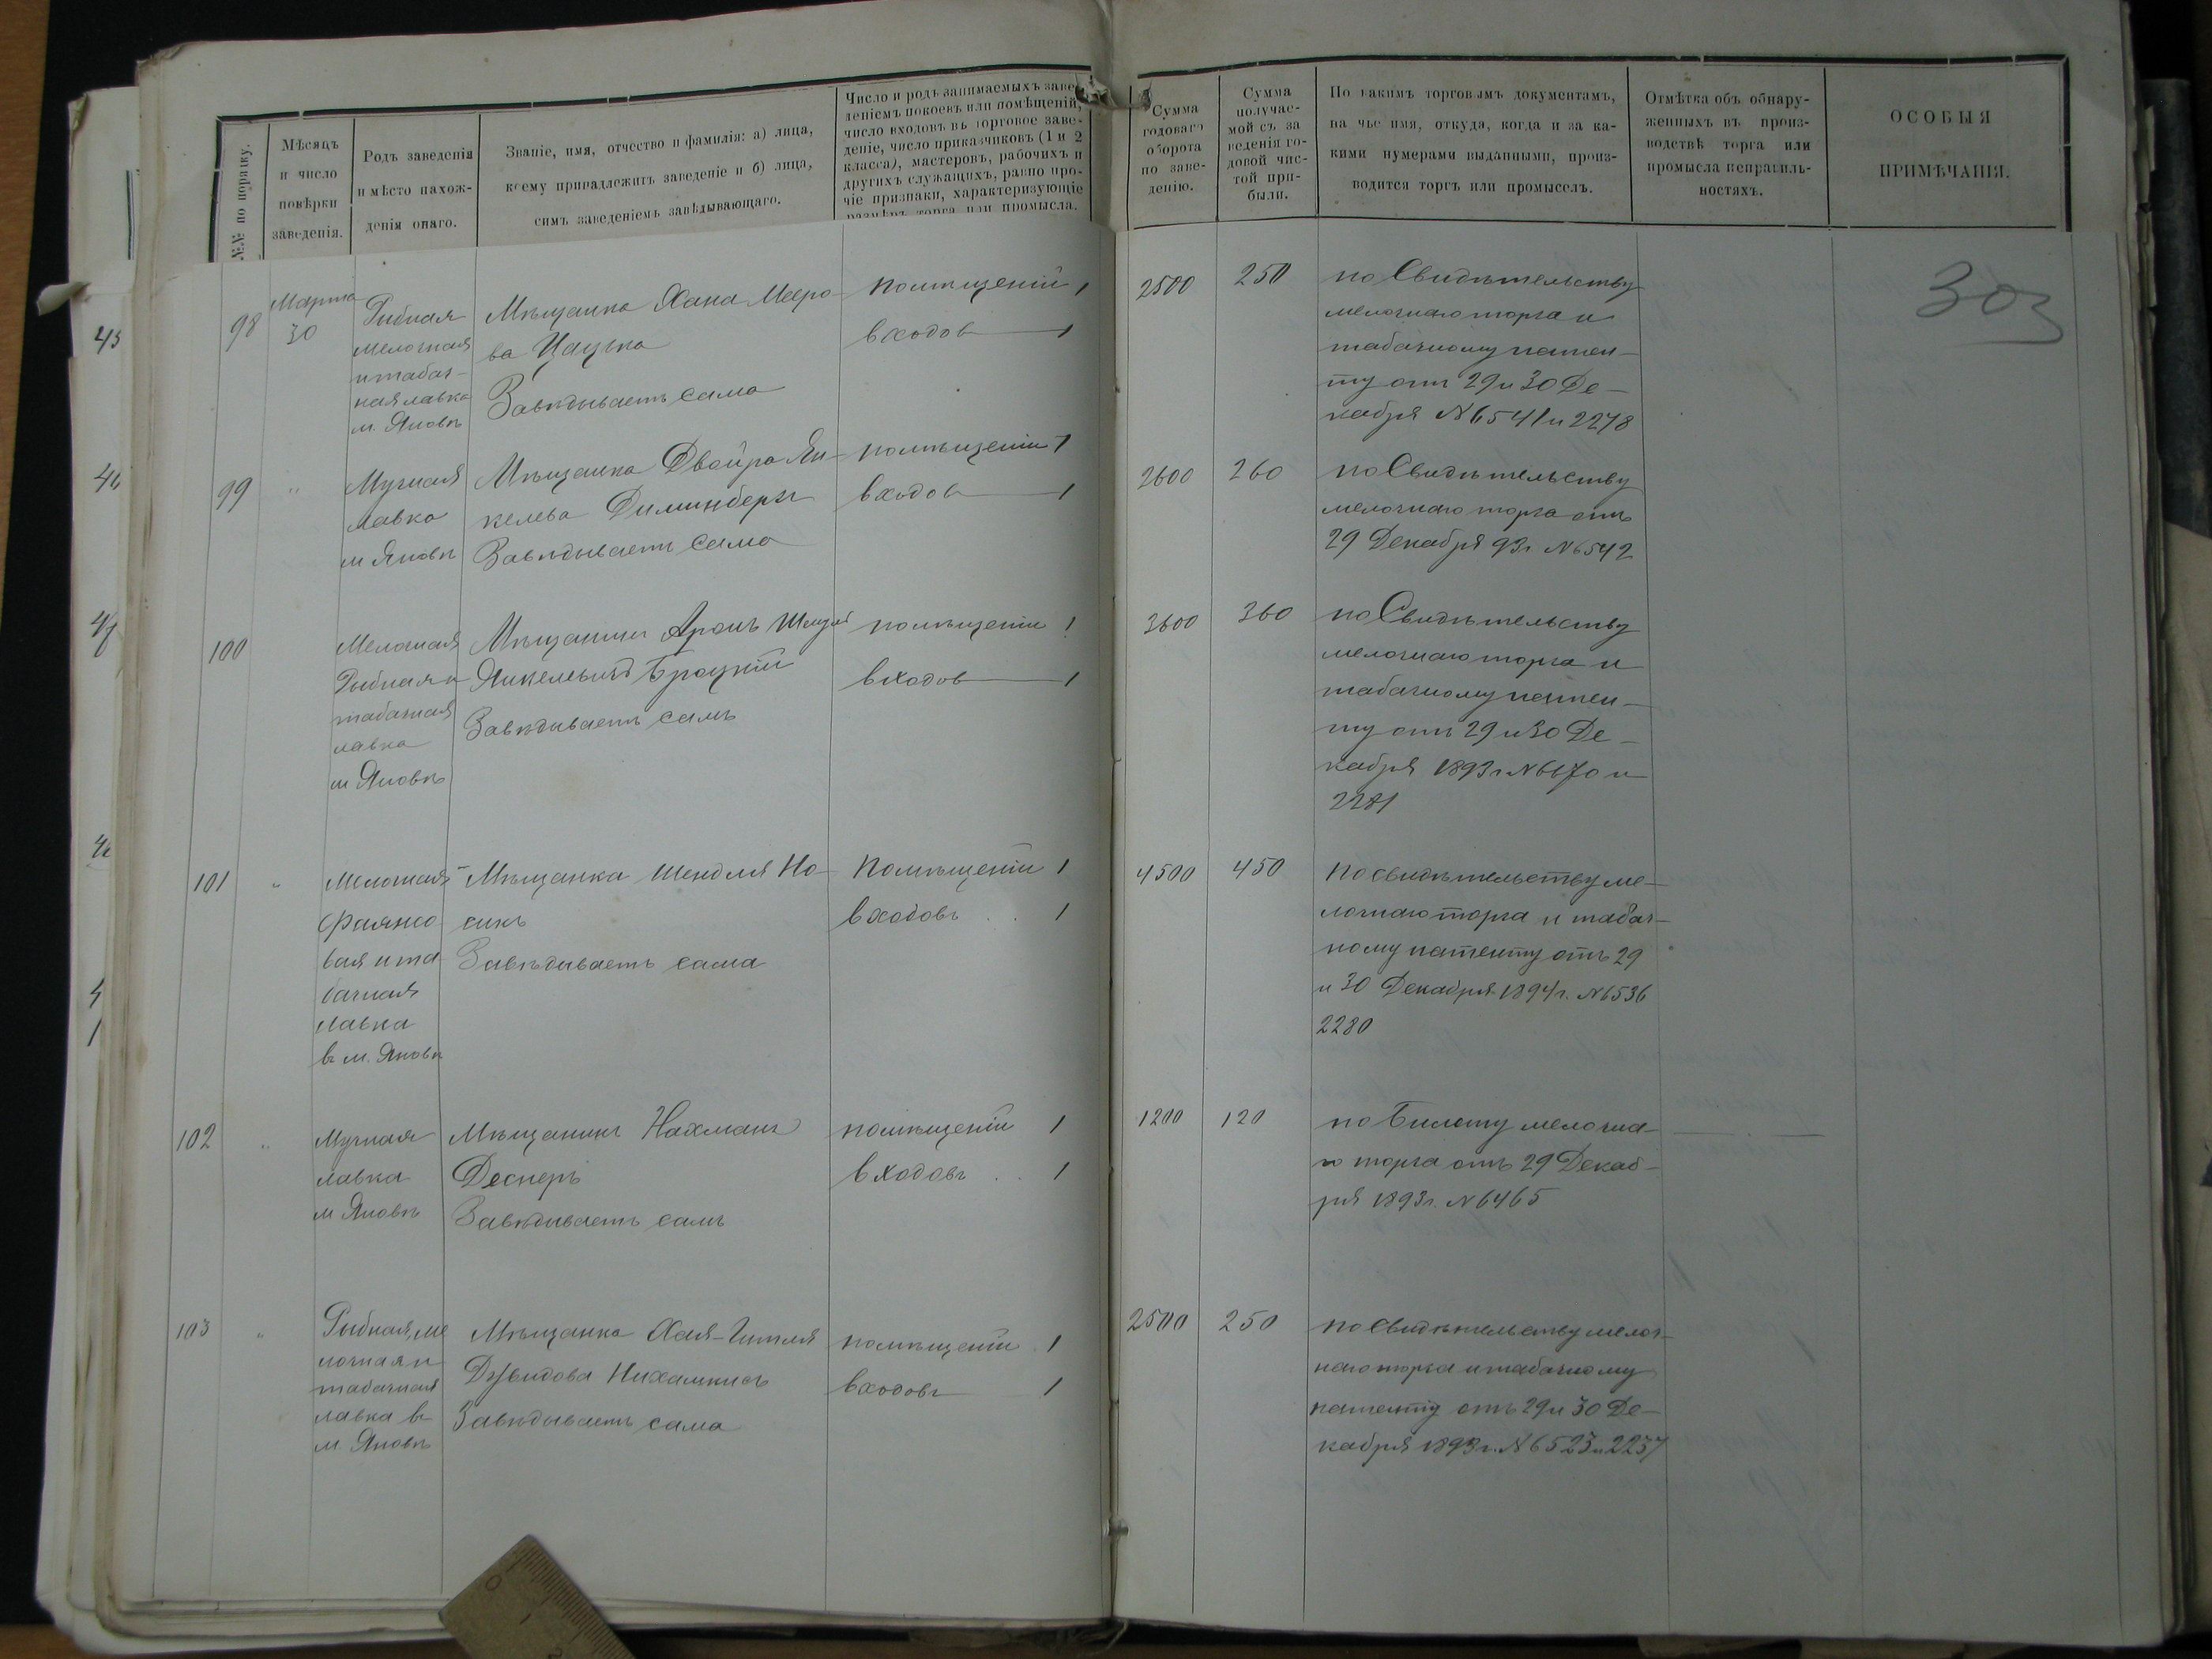 №№ по порядку.
Мѣсяцъ
и число
повѣрки
заведенія.
Родъ заведенія
и мѣсто нахож-
денія онаго.
Званіе, имя, отчество и фамилія: а) лица,
коему принадлежитъ заведеніе и б) лица,
симъ заведеніемъ завѣдывающаго.
Число и родъ занимаемыхъ заве-
деніемъ покоевъ или помѣщеній,
число входовъ въ торговое заве-
деніе, число приказчиковъ (1 и 2
класса), мастеровъ, рабочихъ и
другихъ служащихъ, равно про-
чіе признаки, характеризующіе
размѣръ торга или промысла.
Сумма
годоваго
оборота
по заве-
денію.
Сумма
получае-
мой съ за
веденія го-
довой чис-
той при-
были.
По какимъ торговымъ документамъ,
на чье имя, откуда, когда и за ка-
кими нумерами выданными, произ-
водится торгъ или промыселъ.
Отмѣтка объ обнару-
женныхъ въ произ-
водствѣ торга или
промысла неправиль-
ностяхъ.
ОСОБЫЯ
ПРИМѢЧАНІЯ.
303
98
Марта
30
Рыбная
мелочная
и табач-
ная лавка
м. Яновъ
Мѣщанка Хана Мееро-
ва
Завѣдываетъ сама
помѣщеній 1
входов 1
2500
250
по Свидѣтельству
мелочнаго торга и
табачному патен-
ту отъ 29 и 30 Де-
кабря №6541 и 2278
99
"
Мучная
лавка
м Яновъ
Мѣщанка Двойра Ян-
келева Диминберг
Завѣдываетъ сама
помѣщеніи 1
входов 1
2600
260
по Свидѣтельству
мелочнаго торга отъ
29 Декабря 93г №6542
100
Мелочная
Рыбная и
табачная
лавка
м Яновъ
Мѣщанинъ Аронъ
Янкелевичъ Броцкій
Завѣдываетъ самъ
помѣщеніи 1
входов 1
3600
360
по Свидѣтельству
мелочнаго торга и
табачному патен-
ту отъ 29 и 30 Де-
кабря 1893г №6670 и
2281
101
"
Мелочная
фаянсо
вая и та
бачная
лавка
в м. Яновъ
Мѣщанка Шендля Но-
сикъ
Завѣдываетъ сама
Помѣщеніи 1
входовъ . . 1
4500
450
по свидѣтельству ме-
лочнаго торга и табач-
ному патенту отъ 29
и 30 Декабря 1894г. №6536
2280
102
"
Мучная
лавка
м Яновъ
Мѣщанинъ Нахманъ
Деснеръ
Завѣдываетъ самъ
помѣщеніи 1
входовъ . . 1
1200
120
по Билету мелочна-
го торга отъ 29 Декаб-
ря 1893г. №6465
103
"
Рыбная, ме
лочная и
табачная
лавка в
м Яновъ
Мѣщанка Хая-Гитля
Двыдова Нихамкисъ
Завѣдываетъ сама
помѣщеніи 1
входовъ 1
2500
250
по Свидѣтельству мелоч-
наго торга и табачному
патенту отъ 29 и 30 Де-
кабря 1893г. №6523 и 2237